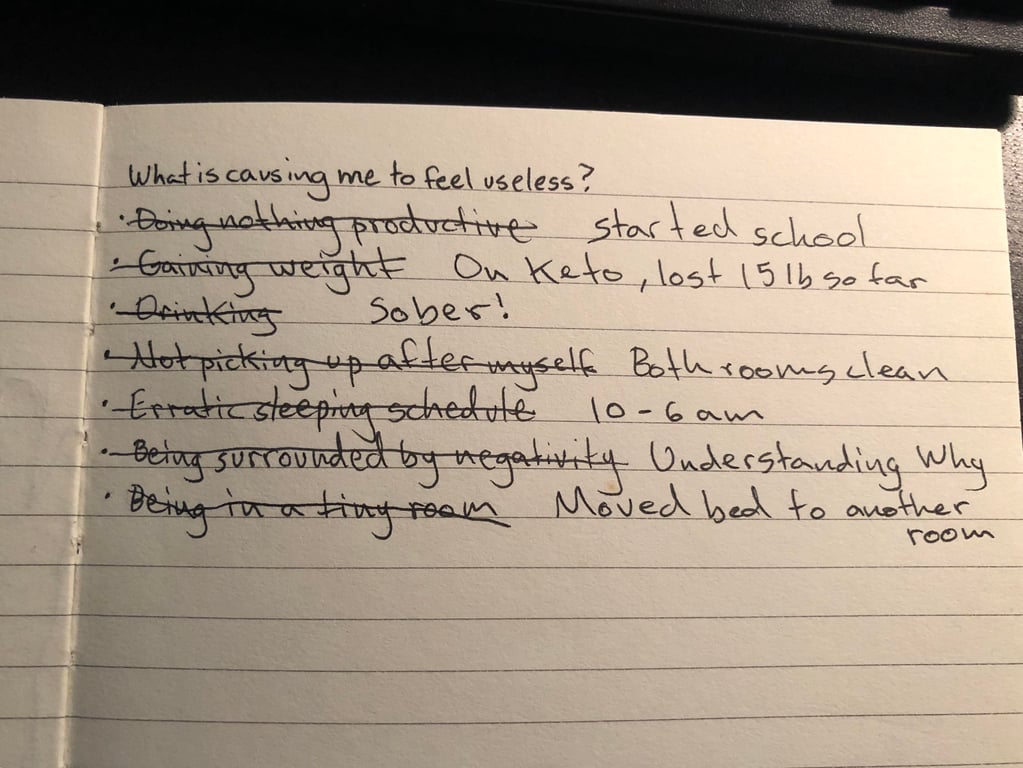 What is causing me to feel useless?
· Doing nothing productive started school
· Gaining weight On Keto, lost 15 lb so far
· Drinking Sober!
· Not picking up after myself Both rooms clean
· Erratic sleeping schedule 10 - 6 am
· Being surrounded by negativity Understanding Why
· Being in a tiny room Moved bed to another
room